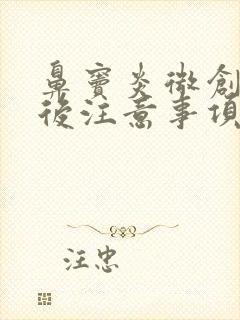 鼻窦炎微創
後注意事項
汪忠